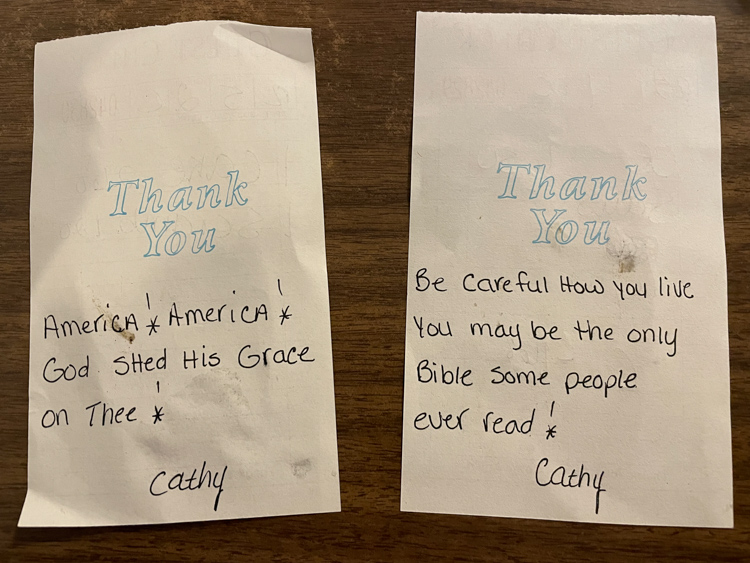 Thank
You
America! America!
God SHed His Grace
on Thee!
Cathy
Thank
You
Be Careful How you live
You may be the only
Bible some people
ever read!
Cathy